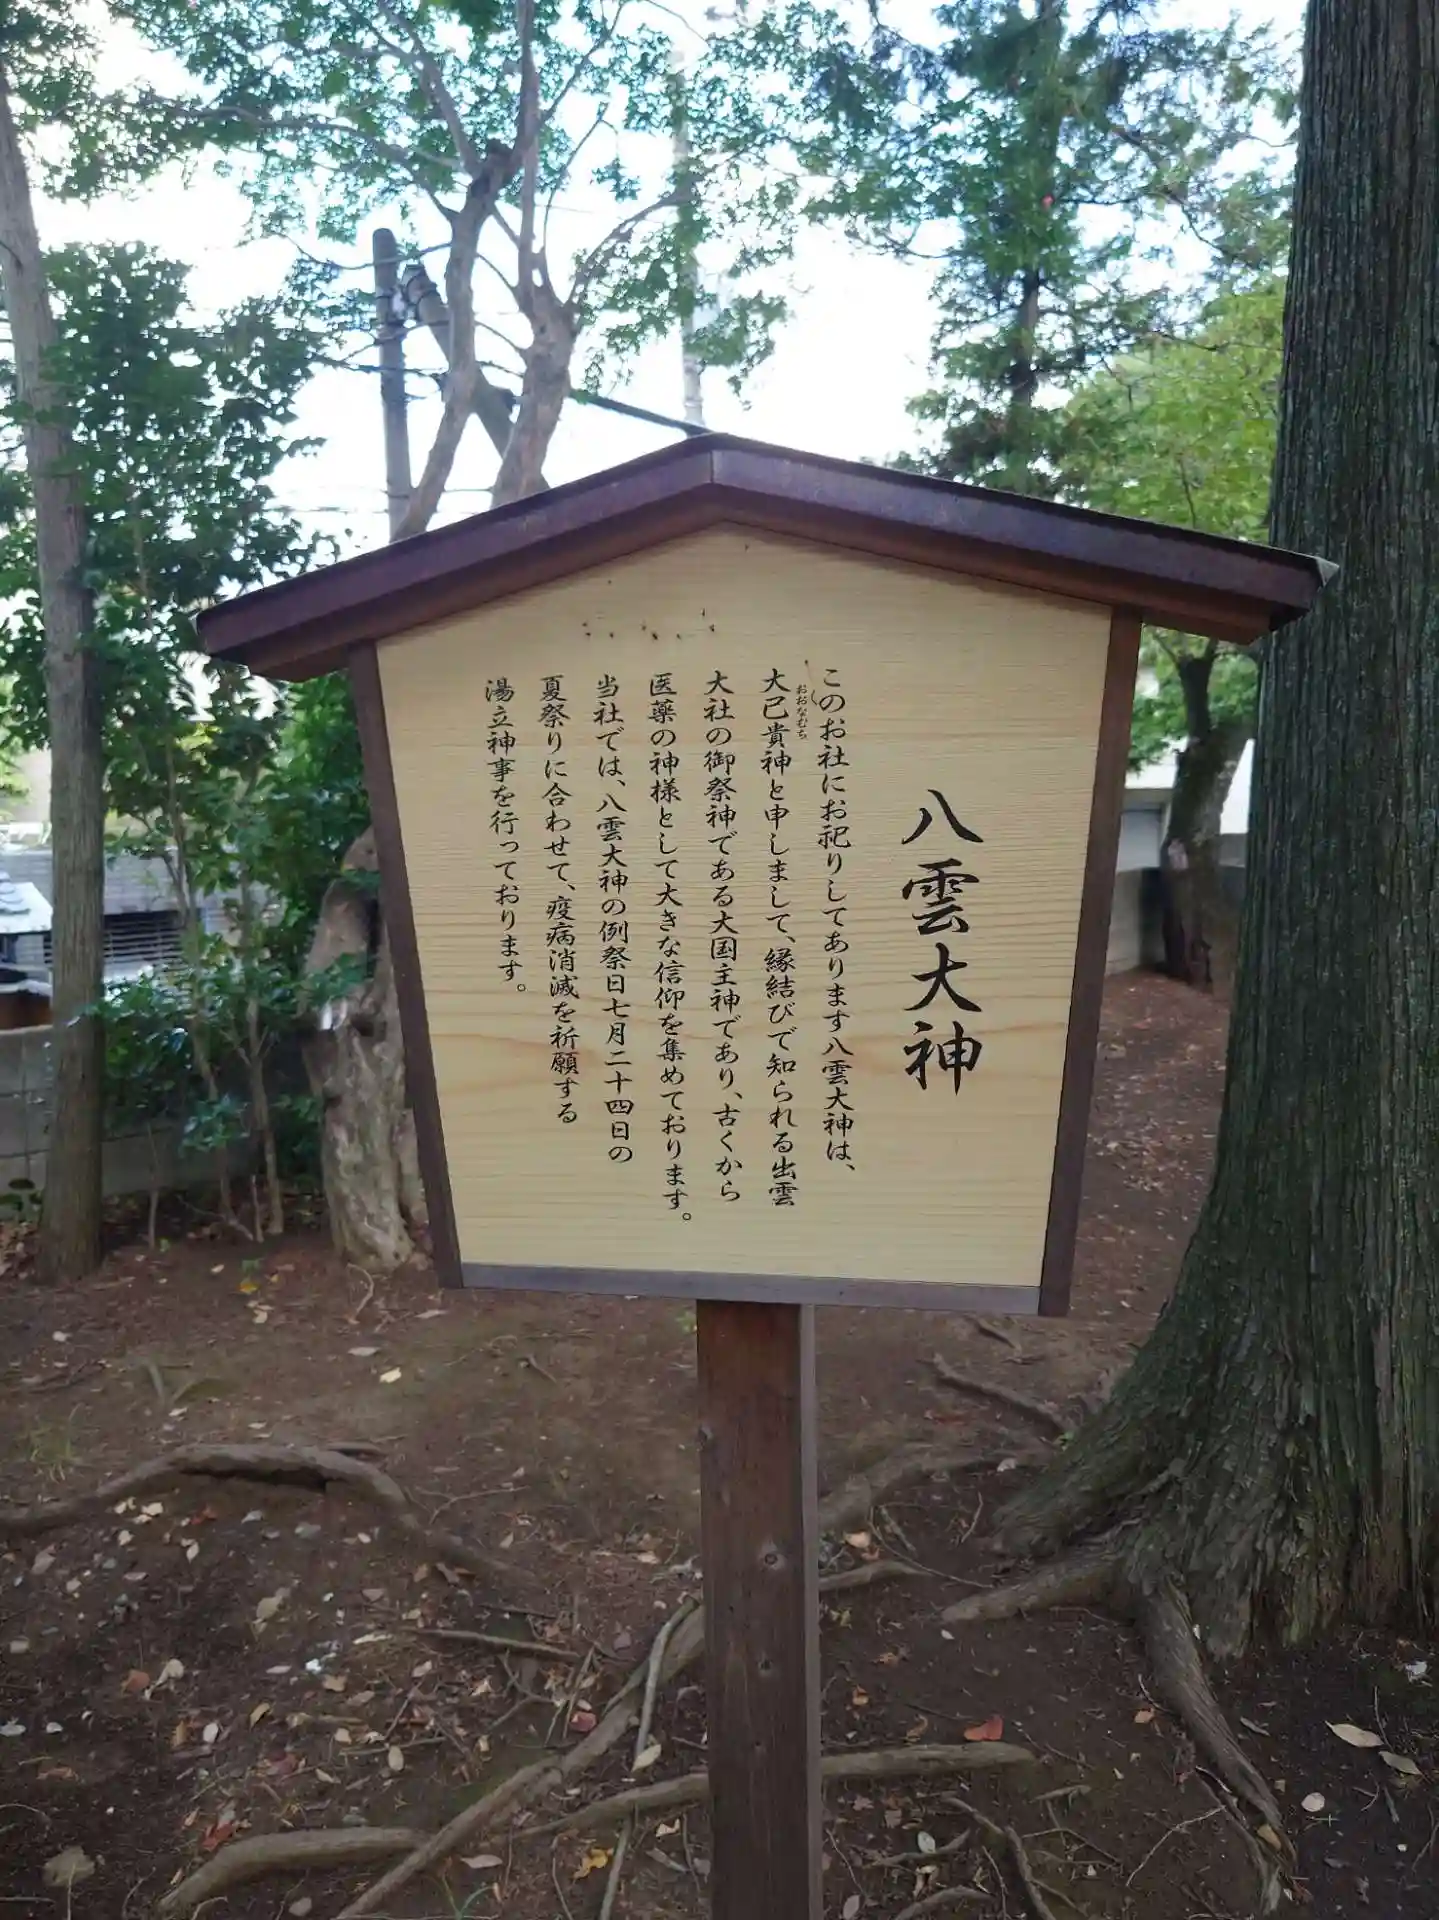 八雲大神
このお社にお祀りしてあります八雲大神は、
大已貴神と申しまして、縁結びで知られる出雲
おおなむち
大社の御祭神である大国主神であり、古くから
医薬の神様として大きな信仰を集めております。
当社では、八雲大神の例祭日七月二十四日の
夏祭りに合わせて、疫病消滅を祈願する
湯立神事を行っております。